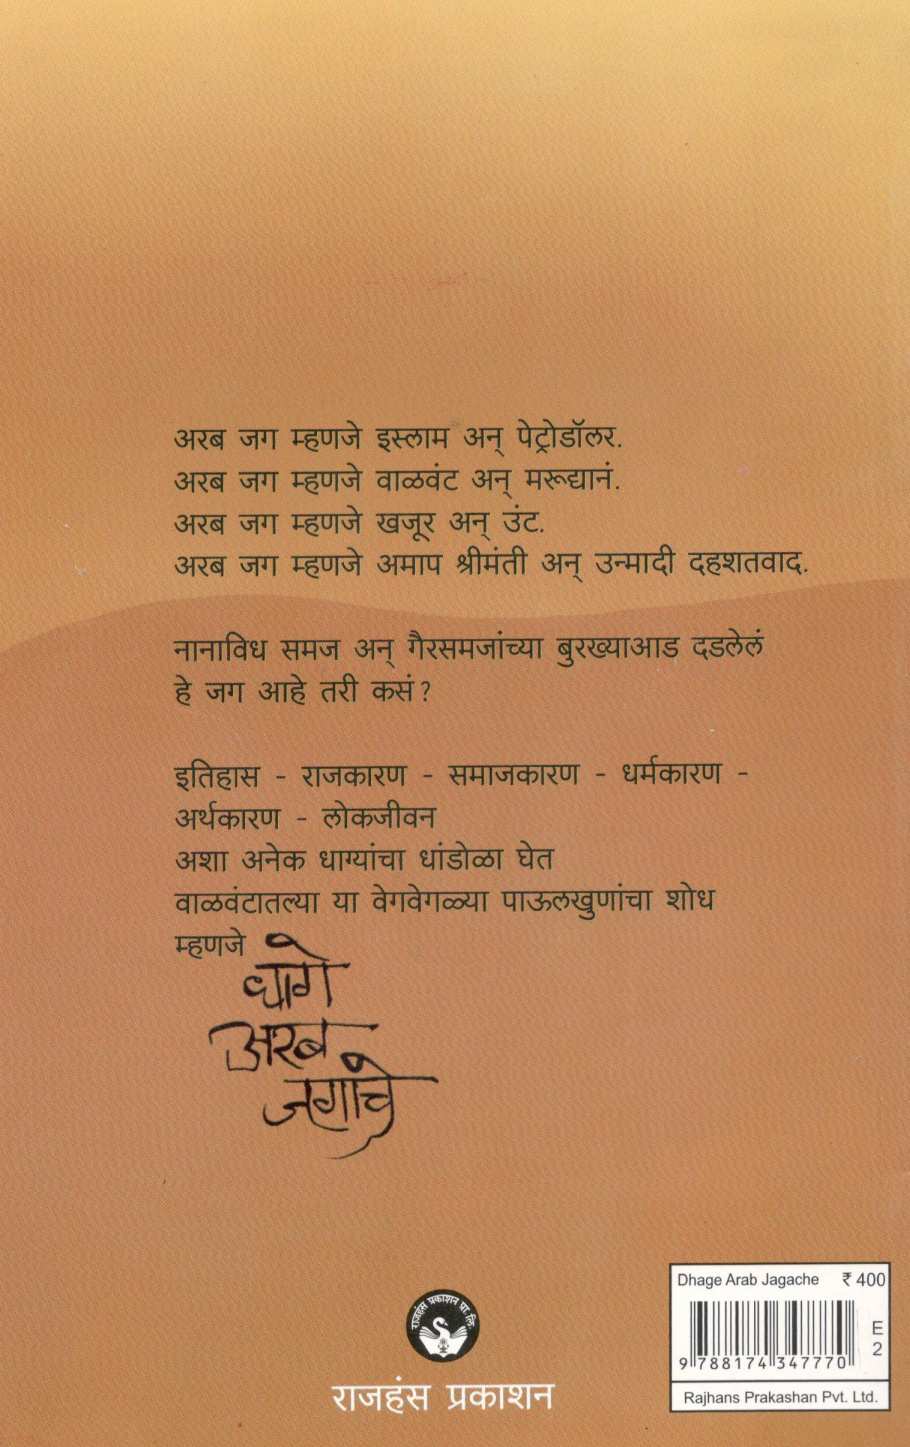 अरब जग म्हणजे इस्लाम अन् पेट्रोडॉलर.
अरब जग म्हणजे वाळवंट अन् मरूद्यानं.
अरब जग म्हणजे खजूर अन् उंट.
अरब जग म्हणजे अमाप श्रीमंती अन् उन्मादी दहशतवाद.
नानाविध समज अन् गैरसमजांच्या बुरख्याआड दडलेलं
हे जग आहे तरी कसं?
इतिहास - राजकारण - समाजकारण - धर्मकारण -
अर्थकारण - लोकजीवन
अशा अनेक धाग्यांचा धांडोळा घेत
वाळवंटातल्या या वेगवेगळ्या पाऊलखुणांचा शोध
म्हणजे
धागे
अरब
जगाचे
राजहंस प्रकाशन प्रा. लि.
राजहंस प्रकाशन
Dhage Arab Jagache ₹ 400
E
2
9 788174 347770
Rajhans Prakashan Pvt. Ltd.